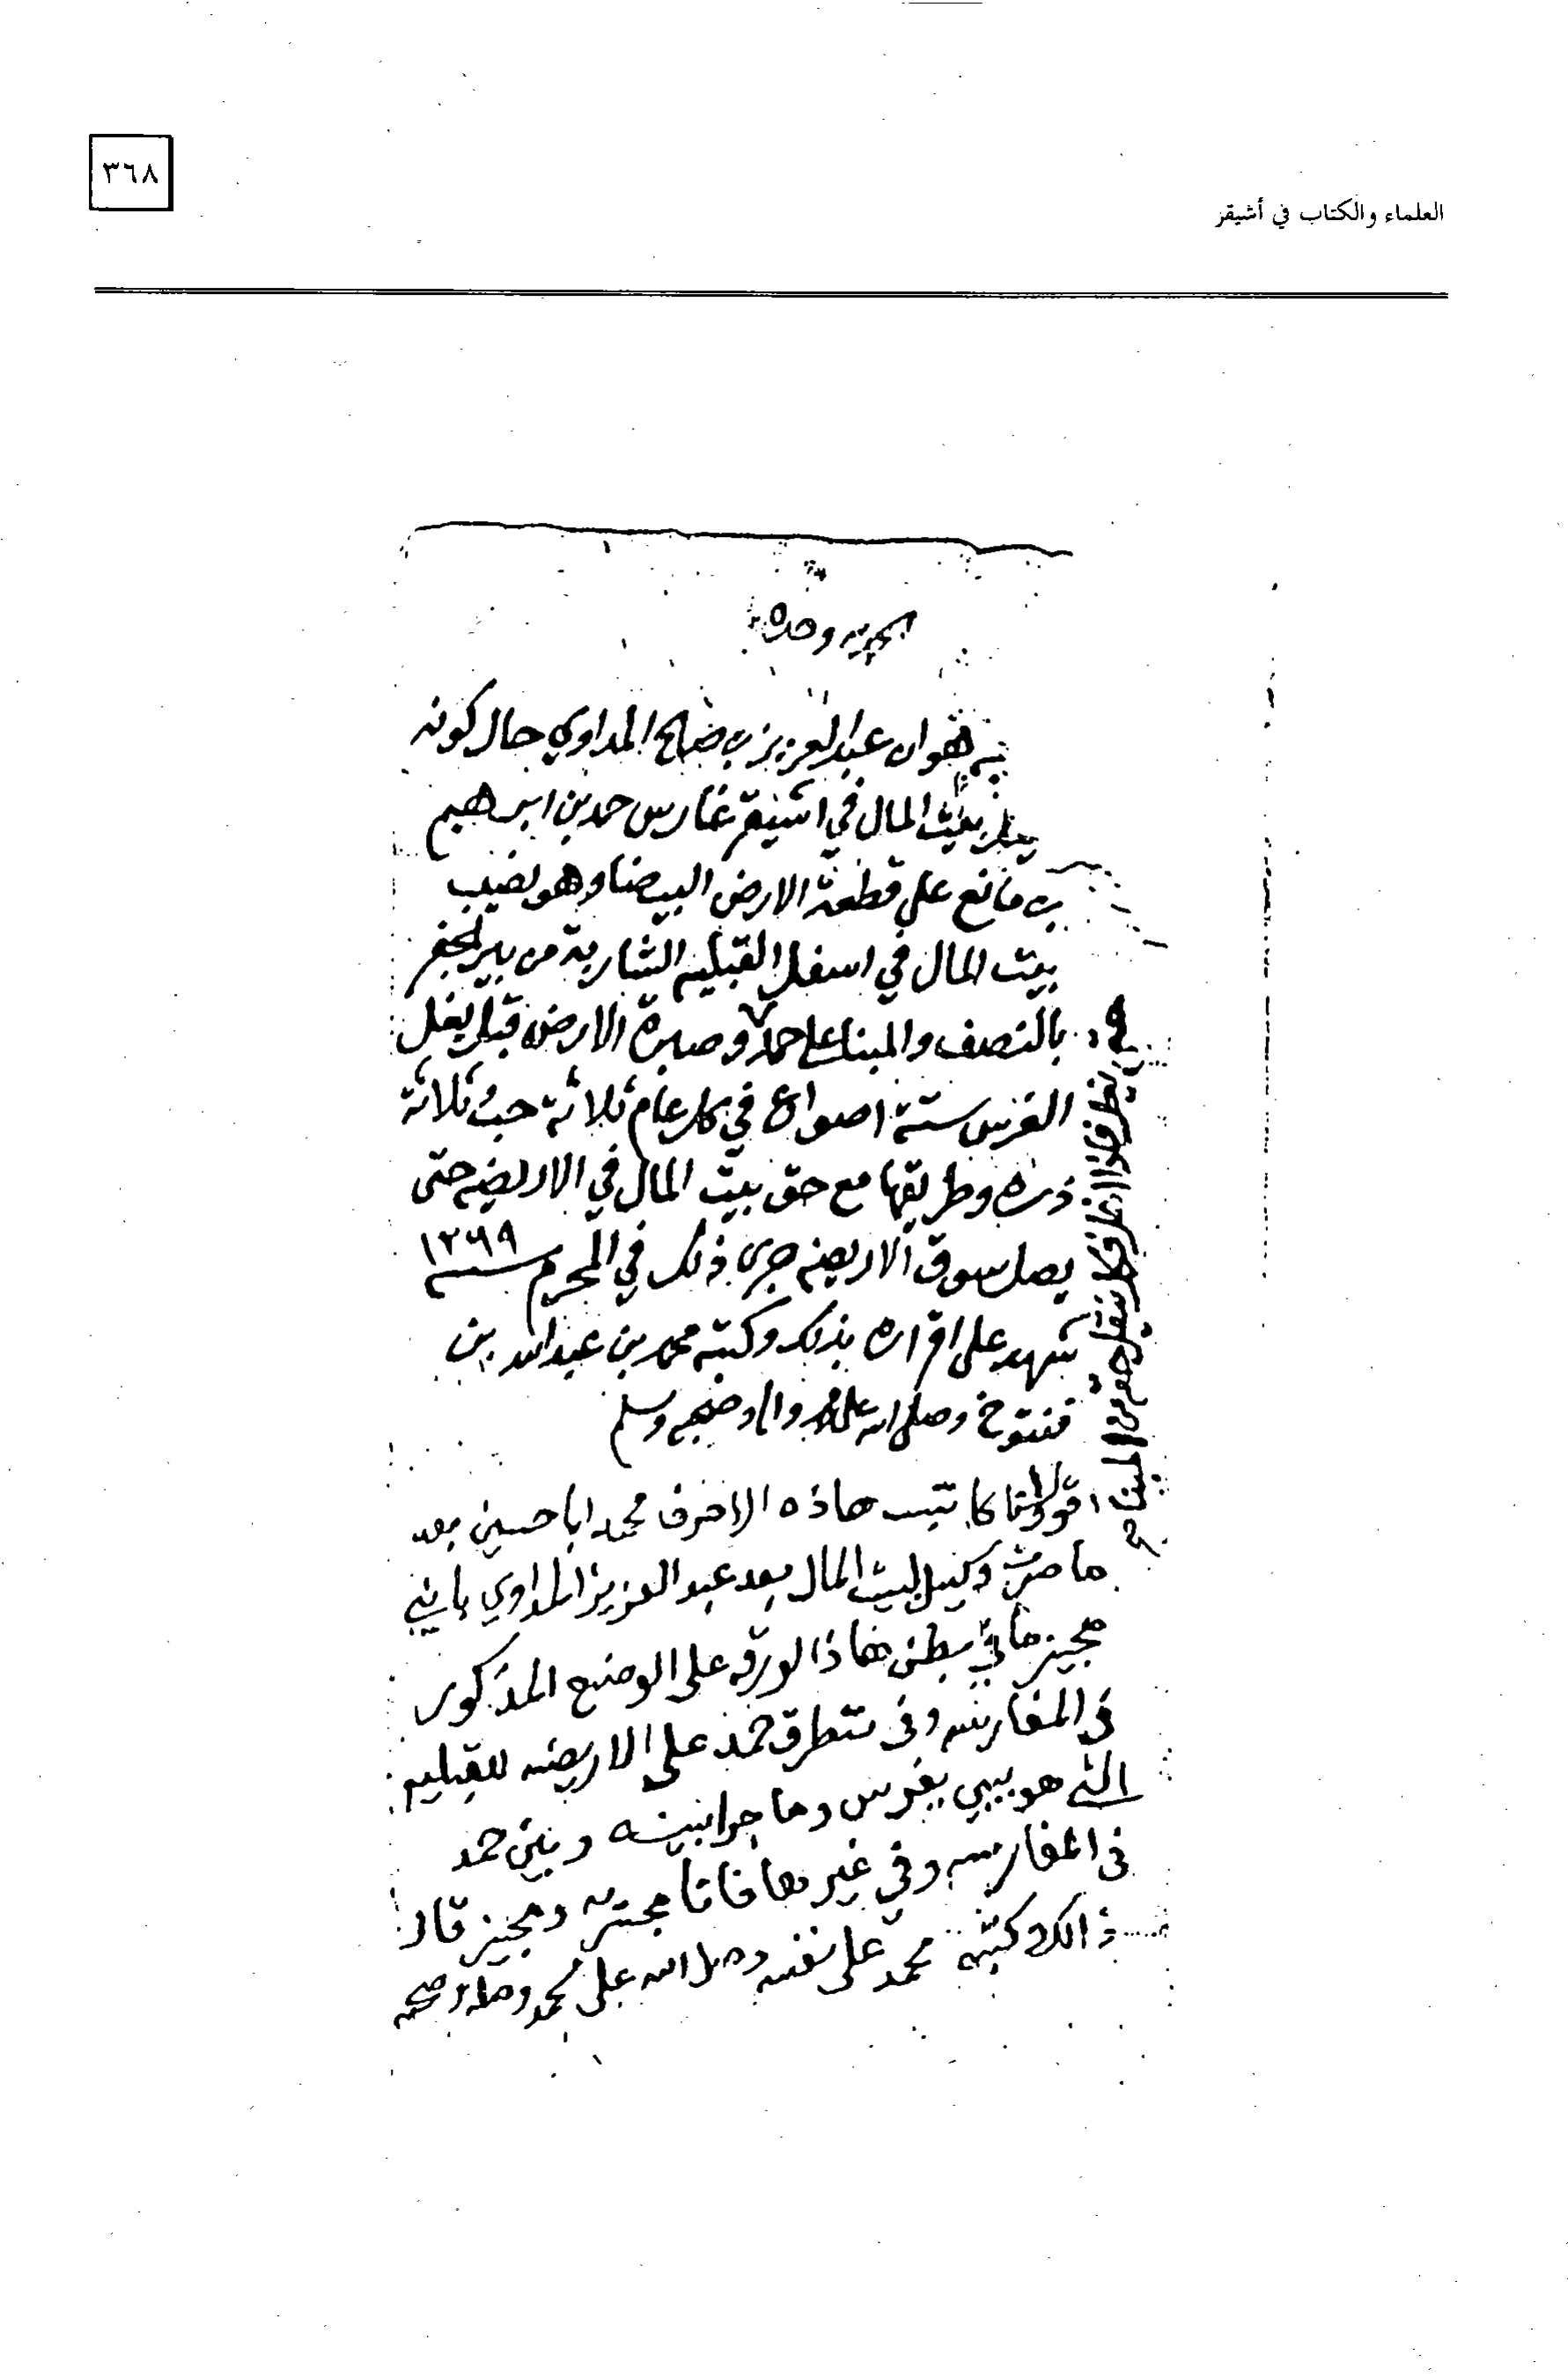 ٣٦٨
العلماء والكتاب في أشيقر
الحمد لله وحده
هو ان عبدالعزيز بن صالح المداوي حال كونه
بيت المال في اشيقر غارس حمد بن ابراهيم
بن مانع على قطعة الارض البيضا وهو نصيب
بيت المال في اسفل القبليه الشاربة من بير
بالنصف والمبنا على حمد وصبرة الارض قبل يغل
الغرس ستة اصواع في كل عام ثلاثة حب وثلاثة
ذره وطريقها مع حق بيت المال في الاريضيه حتى
يصل سوق الاريضيه جرى ذلك في المحرم سنة ١٣٦٩
شهد على اقراره بذلك وكتبه محمد بن عبدالله بن
فنتوخ وصلى الله على محمد واله وصحبه وسلم
اقول وانا كاتب هاذه الاحرف محمد اباحسين بعد
ما صرت وكيل لبيت المال بعد عبد العزيز المداوي باني
مجيز ما في بطن هاذا لورقه على الوضع المذكور
في المغارسه وفي تتطرق حمد على الاريضيه للقبليه
الي هو يبي يغرس وما جرا بينه وبين حمد
في المغارسه وفي غير مجيز قال
ذالك وكتبه محمد على نفسه وصل الله على محمد وصحبه